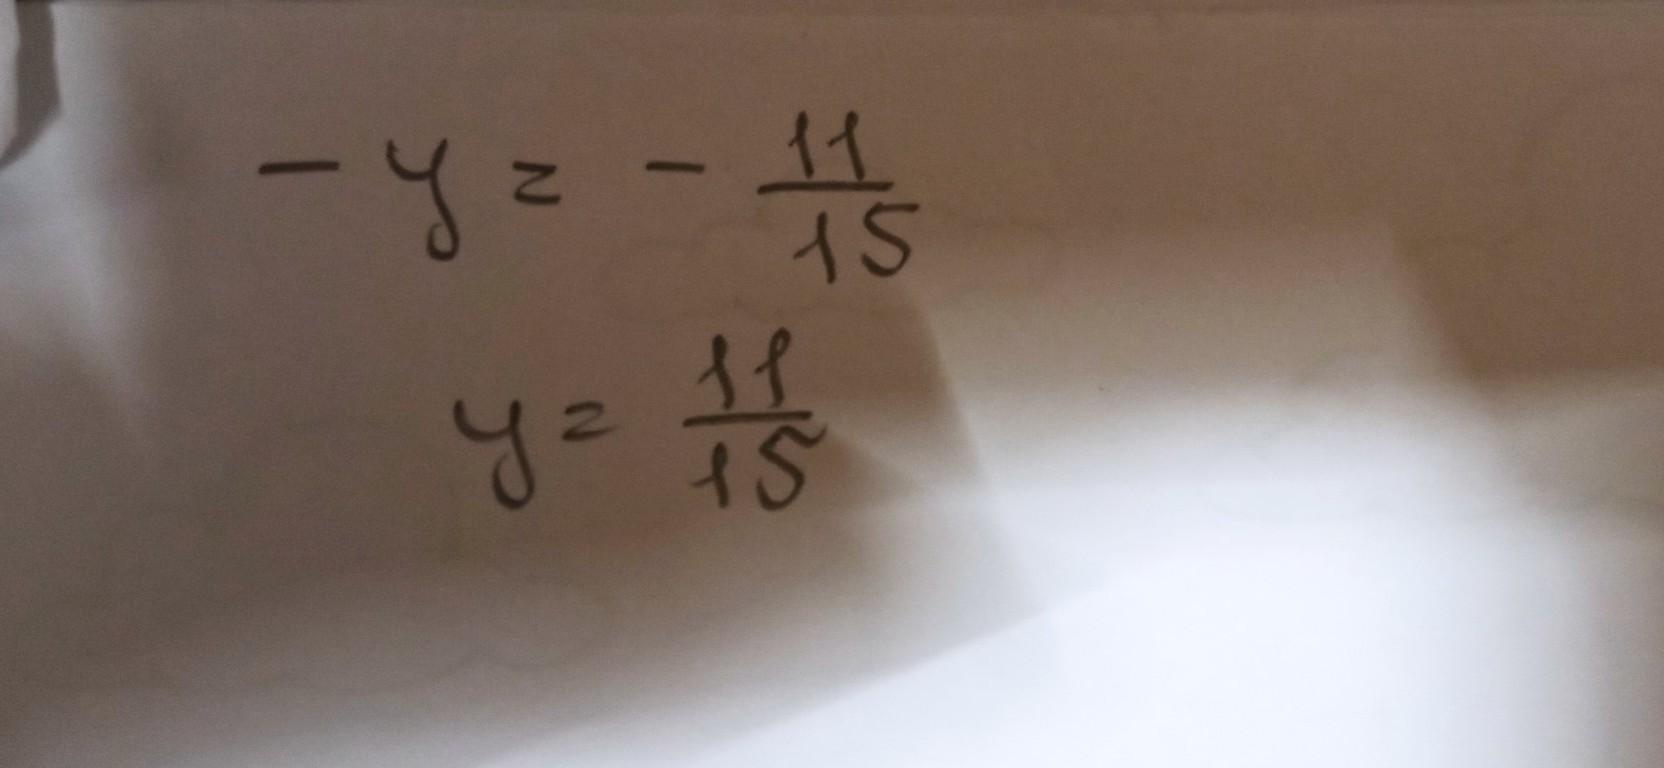 - y = - 11/15
y = 11/15